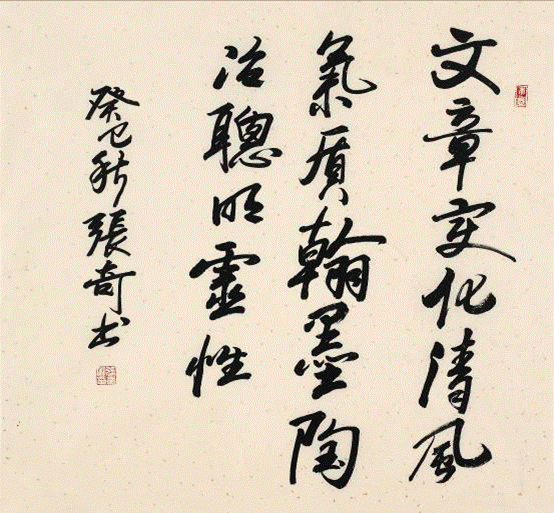 文章变化清風
氣質翰墨陶
冶聰明靈性
癸巳秋張奇书